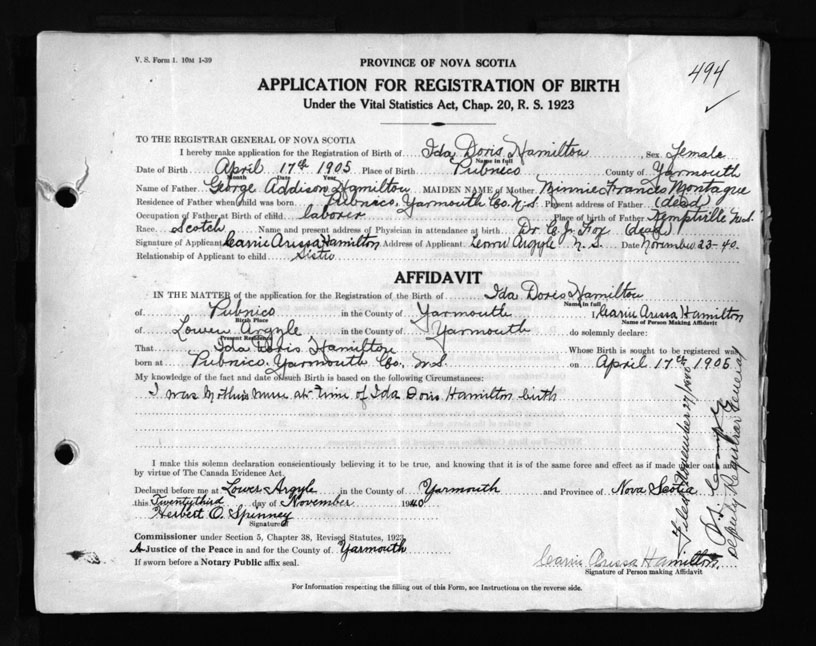 V. S. Form 1. 10M 1-39
494
PROVINCE OF NOVA SCOTIA
APPLICATION FOR REGISTRATION OF BIRTH
Under the Vital Statistics Act, Chap. 20, R. S. 1923
TO THE REGISTRAR GENERAL OF NOVA SCOTIA
I hereby make application for the Registration of Birth of Ida Doris Hamilton Sex Female
Name in full
Date of Birth April 17th 1905 Place of Birth Pubnico County of Yarmouth
Month Date Year
Name of Father George Addison Hamilton MAIDEN NAME of Mother Minnie Frances Montague
Residence of Father when child was born Pubnico, Yarmouth Co. N.S. Present address of Father (dead)
Occupation of Father at Birth of child laborer Place of birth of Father Kemptville N.S.
Race Scotch Name and present address of Physician in attendance at birth Dr. C. J. Fox (dead)
Signature of Applicant Carrie Arissa Hamilton Address of Applicant Lower Argyle N. S. Date November 23-40.
Relationship of Applicant to child Sister
AFFIDAVIT
IN THE MATTER of the application for the Registration of the Birth of Ida Doris Hamilton
Name in full
of Pubnico in the County of Yarmouth I, Carrie Arissa Hamilton
Birth Place Name of Person Making Affidavit
of Lower Argyle in the County of Yarmouth do solemnly declare:
Present Residence
That Ida Doris Hamilton Whose Birth is sought to be registered was
born at Pubnico Yarmouth Co. N.S. on April 17th 1905
My knowledge of the fact and date of such Birth is based on the following Circumstances:
I was Mothers nurse at time of Ida Doris Hamilton birth
I make this solemn declaration conscientiously believing it to be true, and knowing that it is of the same force and effect as if made under oath and
by virtue of The Canada Evidence Act.
Declared before me at Lower Argyle in the County of Yarmouth and Province of Nova Scotia
this Twentythird day of November 1940
Herbert O. Spinney
Signature
Commissioner under Section 5, Chapter 38, Revised Statutes, 1923
A Justice of the Peace in and for the County of Yarmouth
If sworn before a Notary Public affix seal.
Carrie Arissa Hamilton
Signature of Person making Affidavit
For Information respecting the filling out of this Form, see Instructions on the reverse side.
Filed November 27/1940
Deputy Registrar General